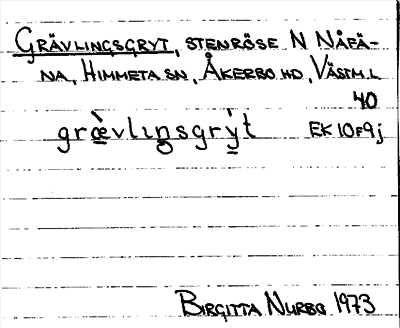 GRÄVLINGSGRYT, STENRÖSE N NÅFÄ-
NA, HIMMETA SN, ÅKERBO HD, VÄSTM.L
40
græ̀vlıŋsgrỳt EK 10F9j
BIRGITTA NURBO 1973